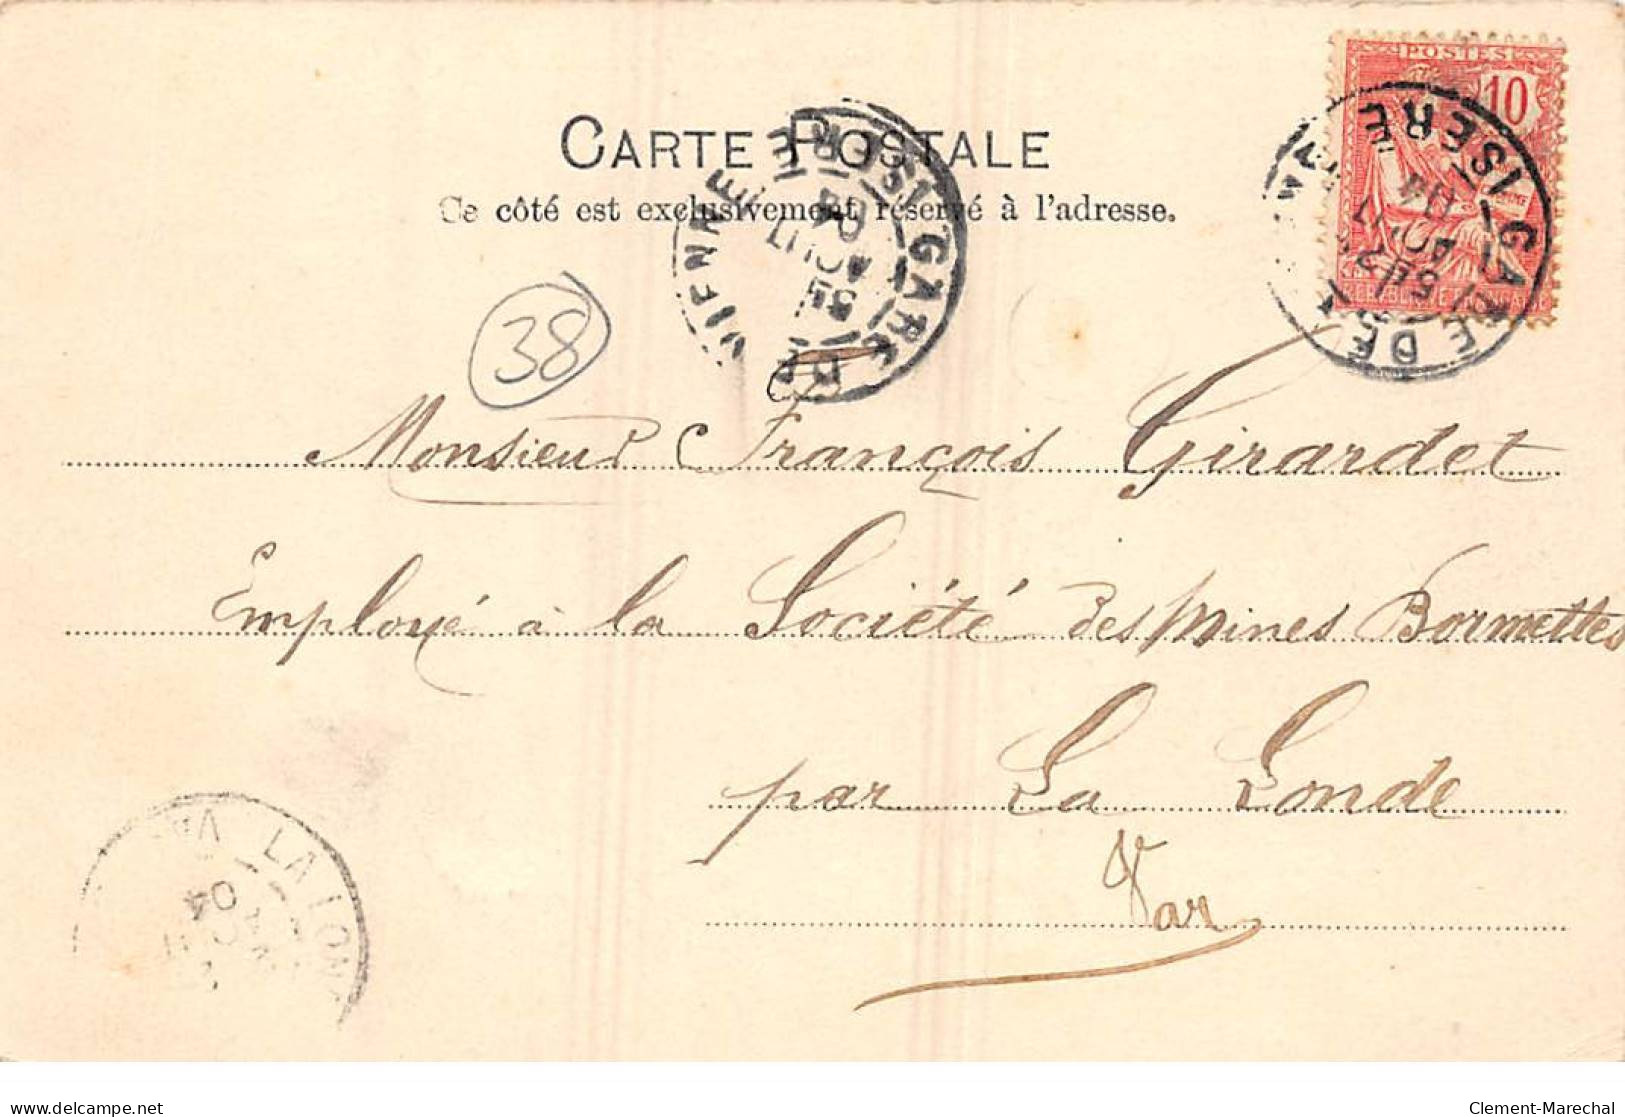 POSTES
10
CARTE POSTALE
Ce côté est exclusivement réservé à l'adresse.
GARE DE VIENNE
ISERE
AOUT
04
38
Monsieur François Girardet
Employé à la Société des Mines Bormettes
par La Londe
Var
LA LOND
VA
04
Clement-Marechal